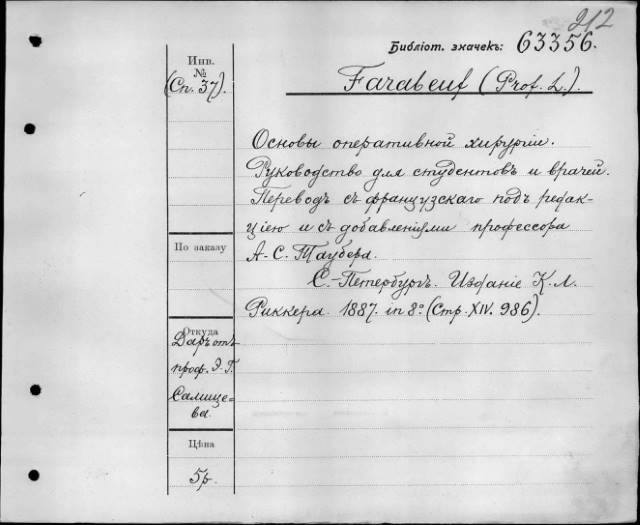 212
Библіот. значекъ: 63356.
Инв.
№
(Сп. 37).
Farabeuf (Prof. L.).
Основы оперативной хирургіи.
Руководство для студентовъ и врачей.
Переводъ съ французскаго подъ редак-
ціею и съ добавленіями профессора
А. С. Таубера.
С.-Петербургъ. Изданіе К. Л.
Риккера. 1887. in 8° (Стр. XIV. 986).
По заказу
Откуда
Даръ отъ
проф. Э. Г.
Салище-
ва.
Цѣна
5р.